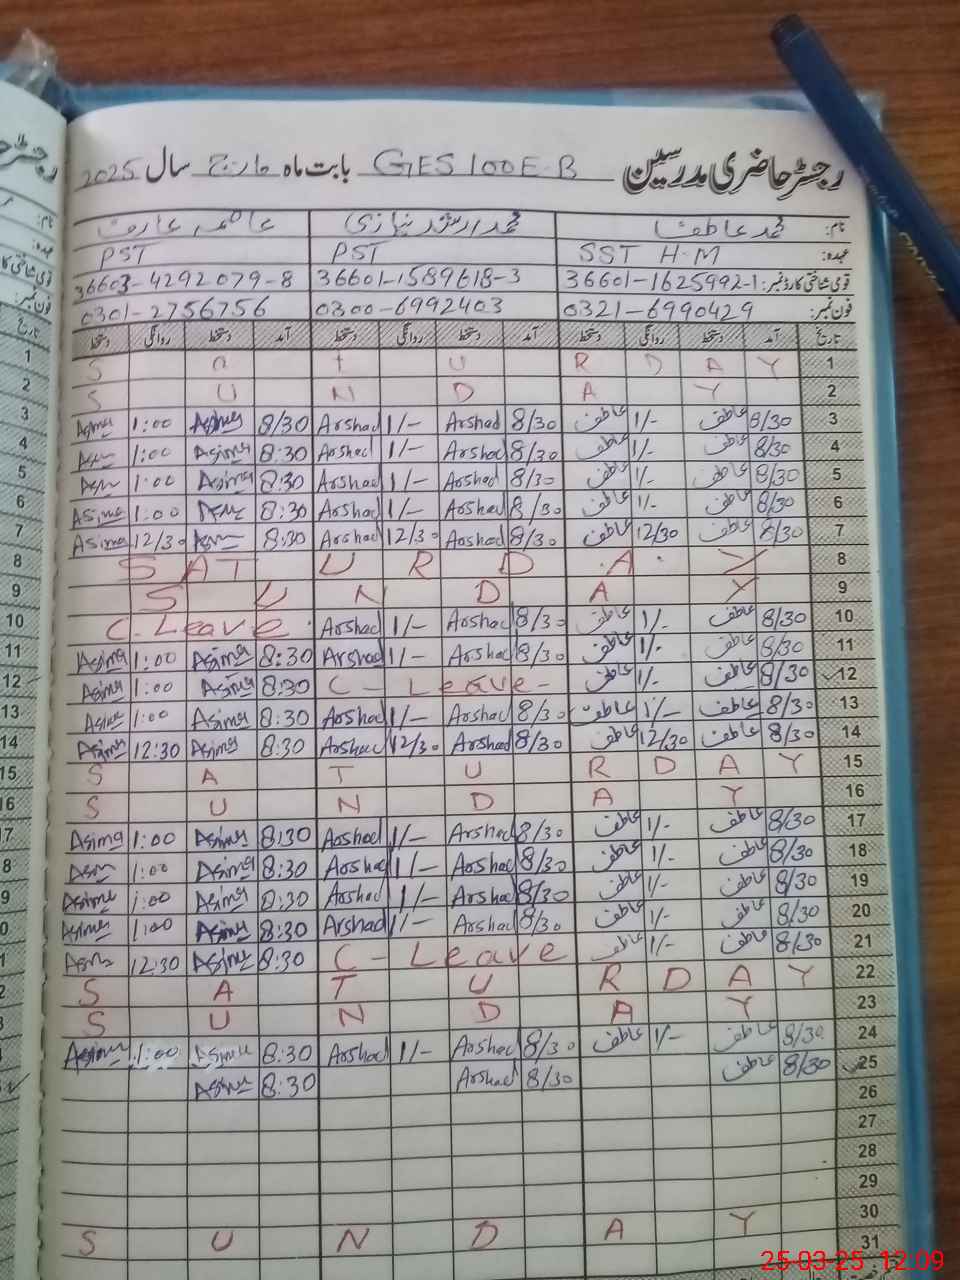 رجسٹر حاضری مدرسین GES 100 E.B بابت ماہ مارچ سال 2025
نام: محمد عاطف محمد ارشد نیازی عاصمہ عارف
عہدہ: SST H.M PST PST
قومی شناختی کارڈ نمبر: 36601-1625992-1 36601-1589618-3 36603-4292079-8
فون نمبر: 0321-6990429 0300-6992403 0301-2756756
تاریخ آمد دستخط روانگی دستخط آمد دستخط روانگی دستخط آمد دستخط روانگی دستخط
S a t U R D A Y 1
S U N D A Y 2
Asima 1:00 Asima 8/30 Arshad 1/- Arshad 8/30 عاطف 1/- عاطف 8/30 3
Asm 1:00 Asima 8:30 Arshad 1/- Arshad 8/30 عاطف 1/- عاطف 8/30 4
Asm 1:00 Asima 8:30 Arshad 1/- Arshad 8/30 عاطف 1/- عاطف 8/30 5
Asima 1:00 8:30 Arshad 1/- Arshad 8/30 عاطف 1/- عاطف 8/30 6
Asima 12/30 Asm 8:30 Arshad 12/30 Arshad 8/30 عاطف 12/30 عاطف 8/30 7
S A T U R D A Y 8
S U N D A Y 9
C. Leave Arshad 1/- Arshad 8/30 عاطف 1/- عاطف 8/30 10
Asima 1:00 Asima 8:30 Arshad 1/- Arshad 8/30 عاطف 1/- عاطف 8/30 11
Asima 1:00 Asima 8:30 C - Leave - عاطف 1/- عاطف 8/30 12
Asima 1:00 Asima 8:30 Arshad 1/- Arshad 8/30 عاطف 1/- عاطف 8/30 13
Asima 12:30 Asima 8:30 Arshad 12/30 Arshad 8/30 عاطف 12/30 عاطف 8/30 14
S A T U R D A Y 15
S U N D A Y 16
Asima 1:00 Asima 8:30 Arshad 1/- Arshad 8/30 عاطف 1/- عاطف 8/30 17
Asm 1:00 Asima 8:30 Arshad 1/- Arshad 8/30 عاطف 1/- عاطف 8/30 18
Asima 1:00 Asima 8:30 Arshad 1/- Arshad 8/30 عاطف 1/- عاطف 8/30 19
Asima 1:00 Asima 8:30 Arshad 1/- Arshad 8/30 عاطف 1/- عاطف 8/30 20
Asm 12:30 Asima 8:30 C - Leave عاطف 1/- عاطف 8/30 21
S A T U R D A Y 22
S U N D A Y 23
Asima 1:00 Asima 8:30 Arshad 1/- Arshad 8/30 عاطف 1/- عاطف 8/30 24
Asima 8:30 Arshad 8/30 عاطف 8/30 25
26
27
28
29
30
S U N D A Y 31
25-03-25 12:09